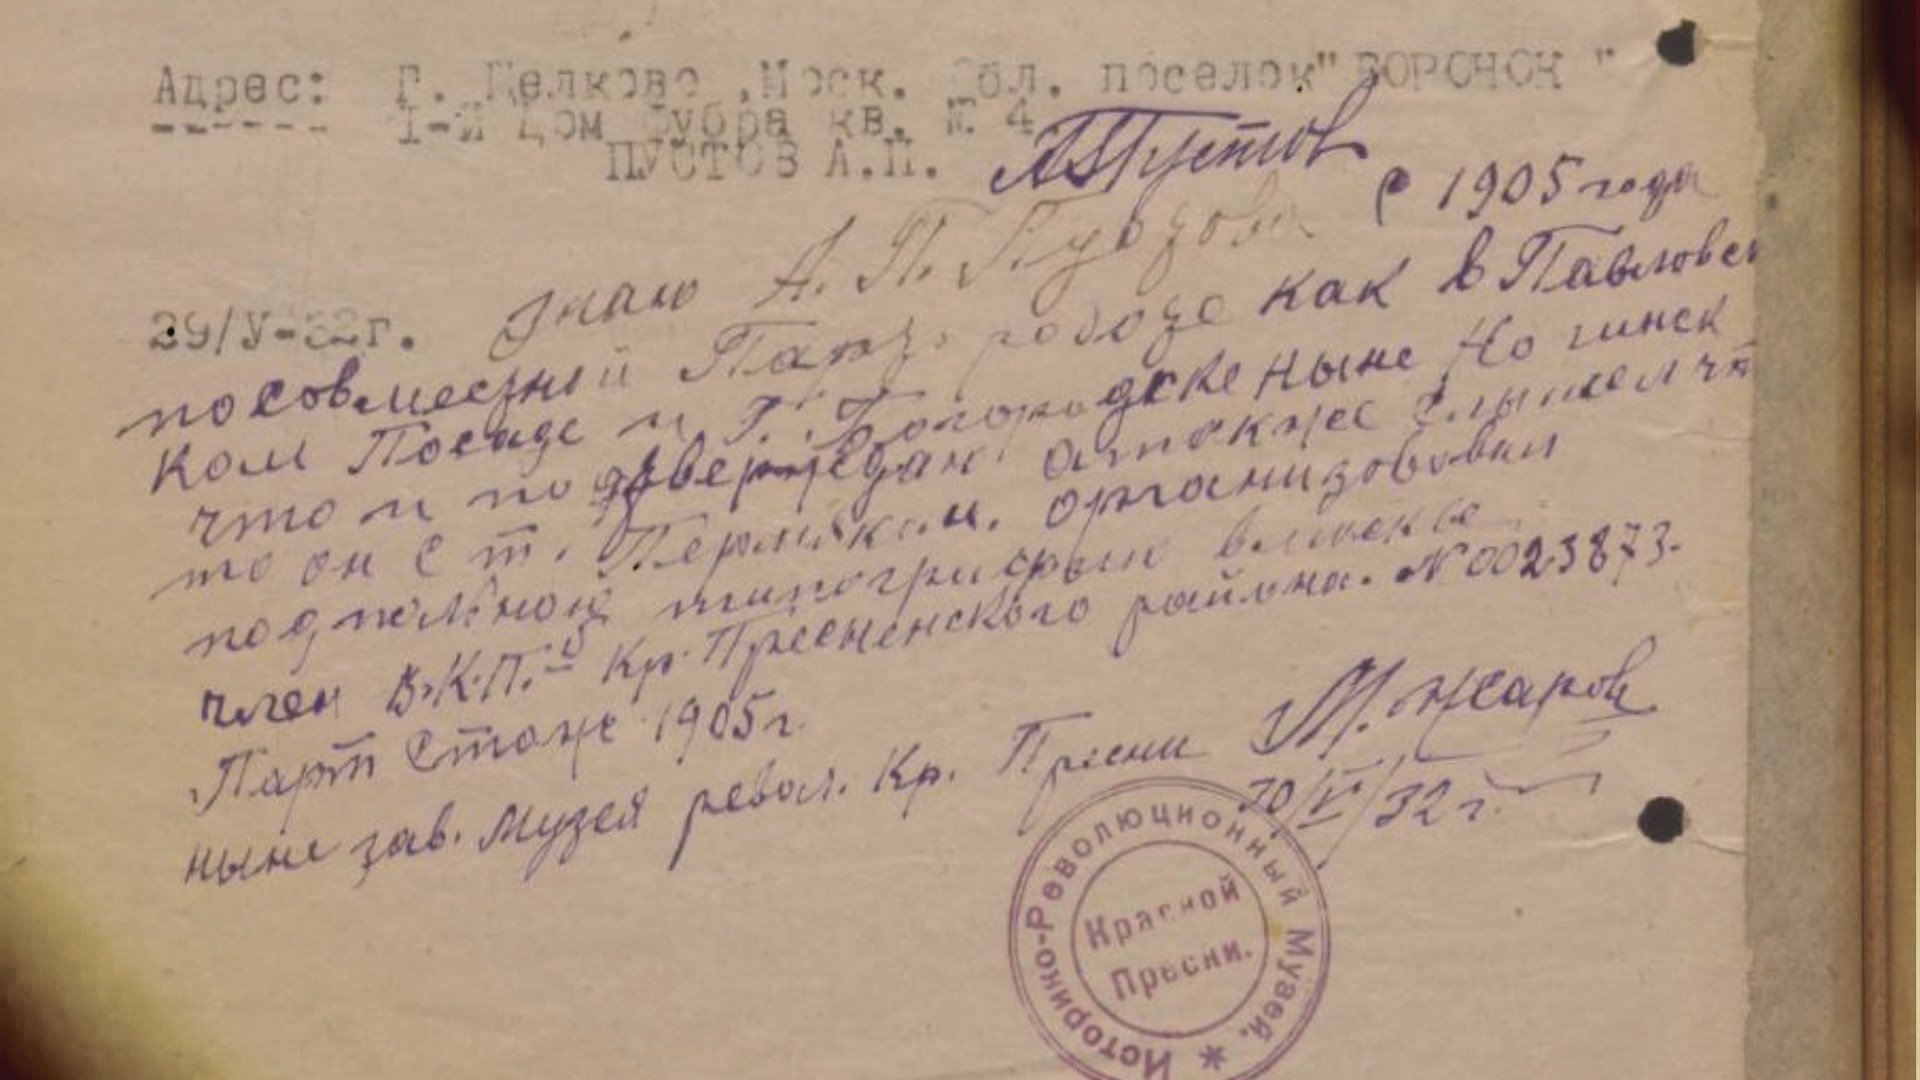 Адрес: Г. Щелково ,Моск. Обл. поселок "ВОРОНОК "
1-й Дом кв. № 4.
ПУСТОВ А.П. АППустов
29/У-32г. Знаю А. П. с 1905 года
по совместной Парт. работе как в Павловск
ком Посаде и г. Богородске ныне Ногинск
что и подтверждаю а также слышал чт
то он с т. организовывал
подпольную типографию
член В.К.П.б Кр. Пресненского района. № 0023873.
Парт стаж 1905 г.
ныне зав. Музея револ. Кр. Пресни М. Жаров
30/V/32 г.
Историко-Революционный Музей.
Красной
Пресни.